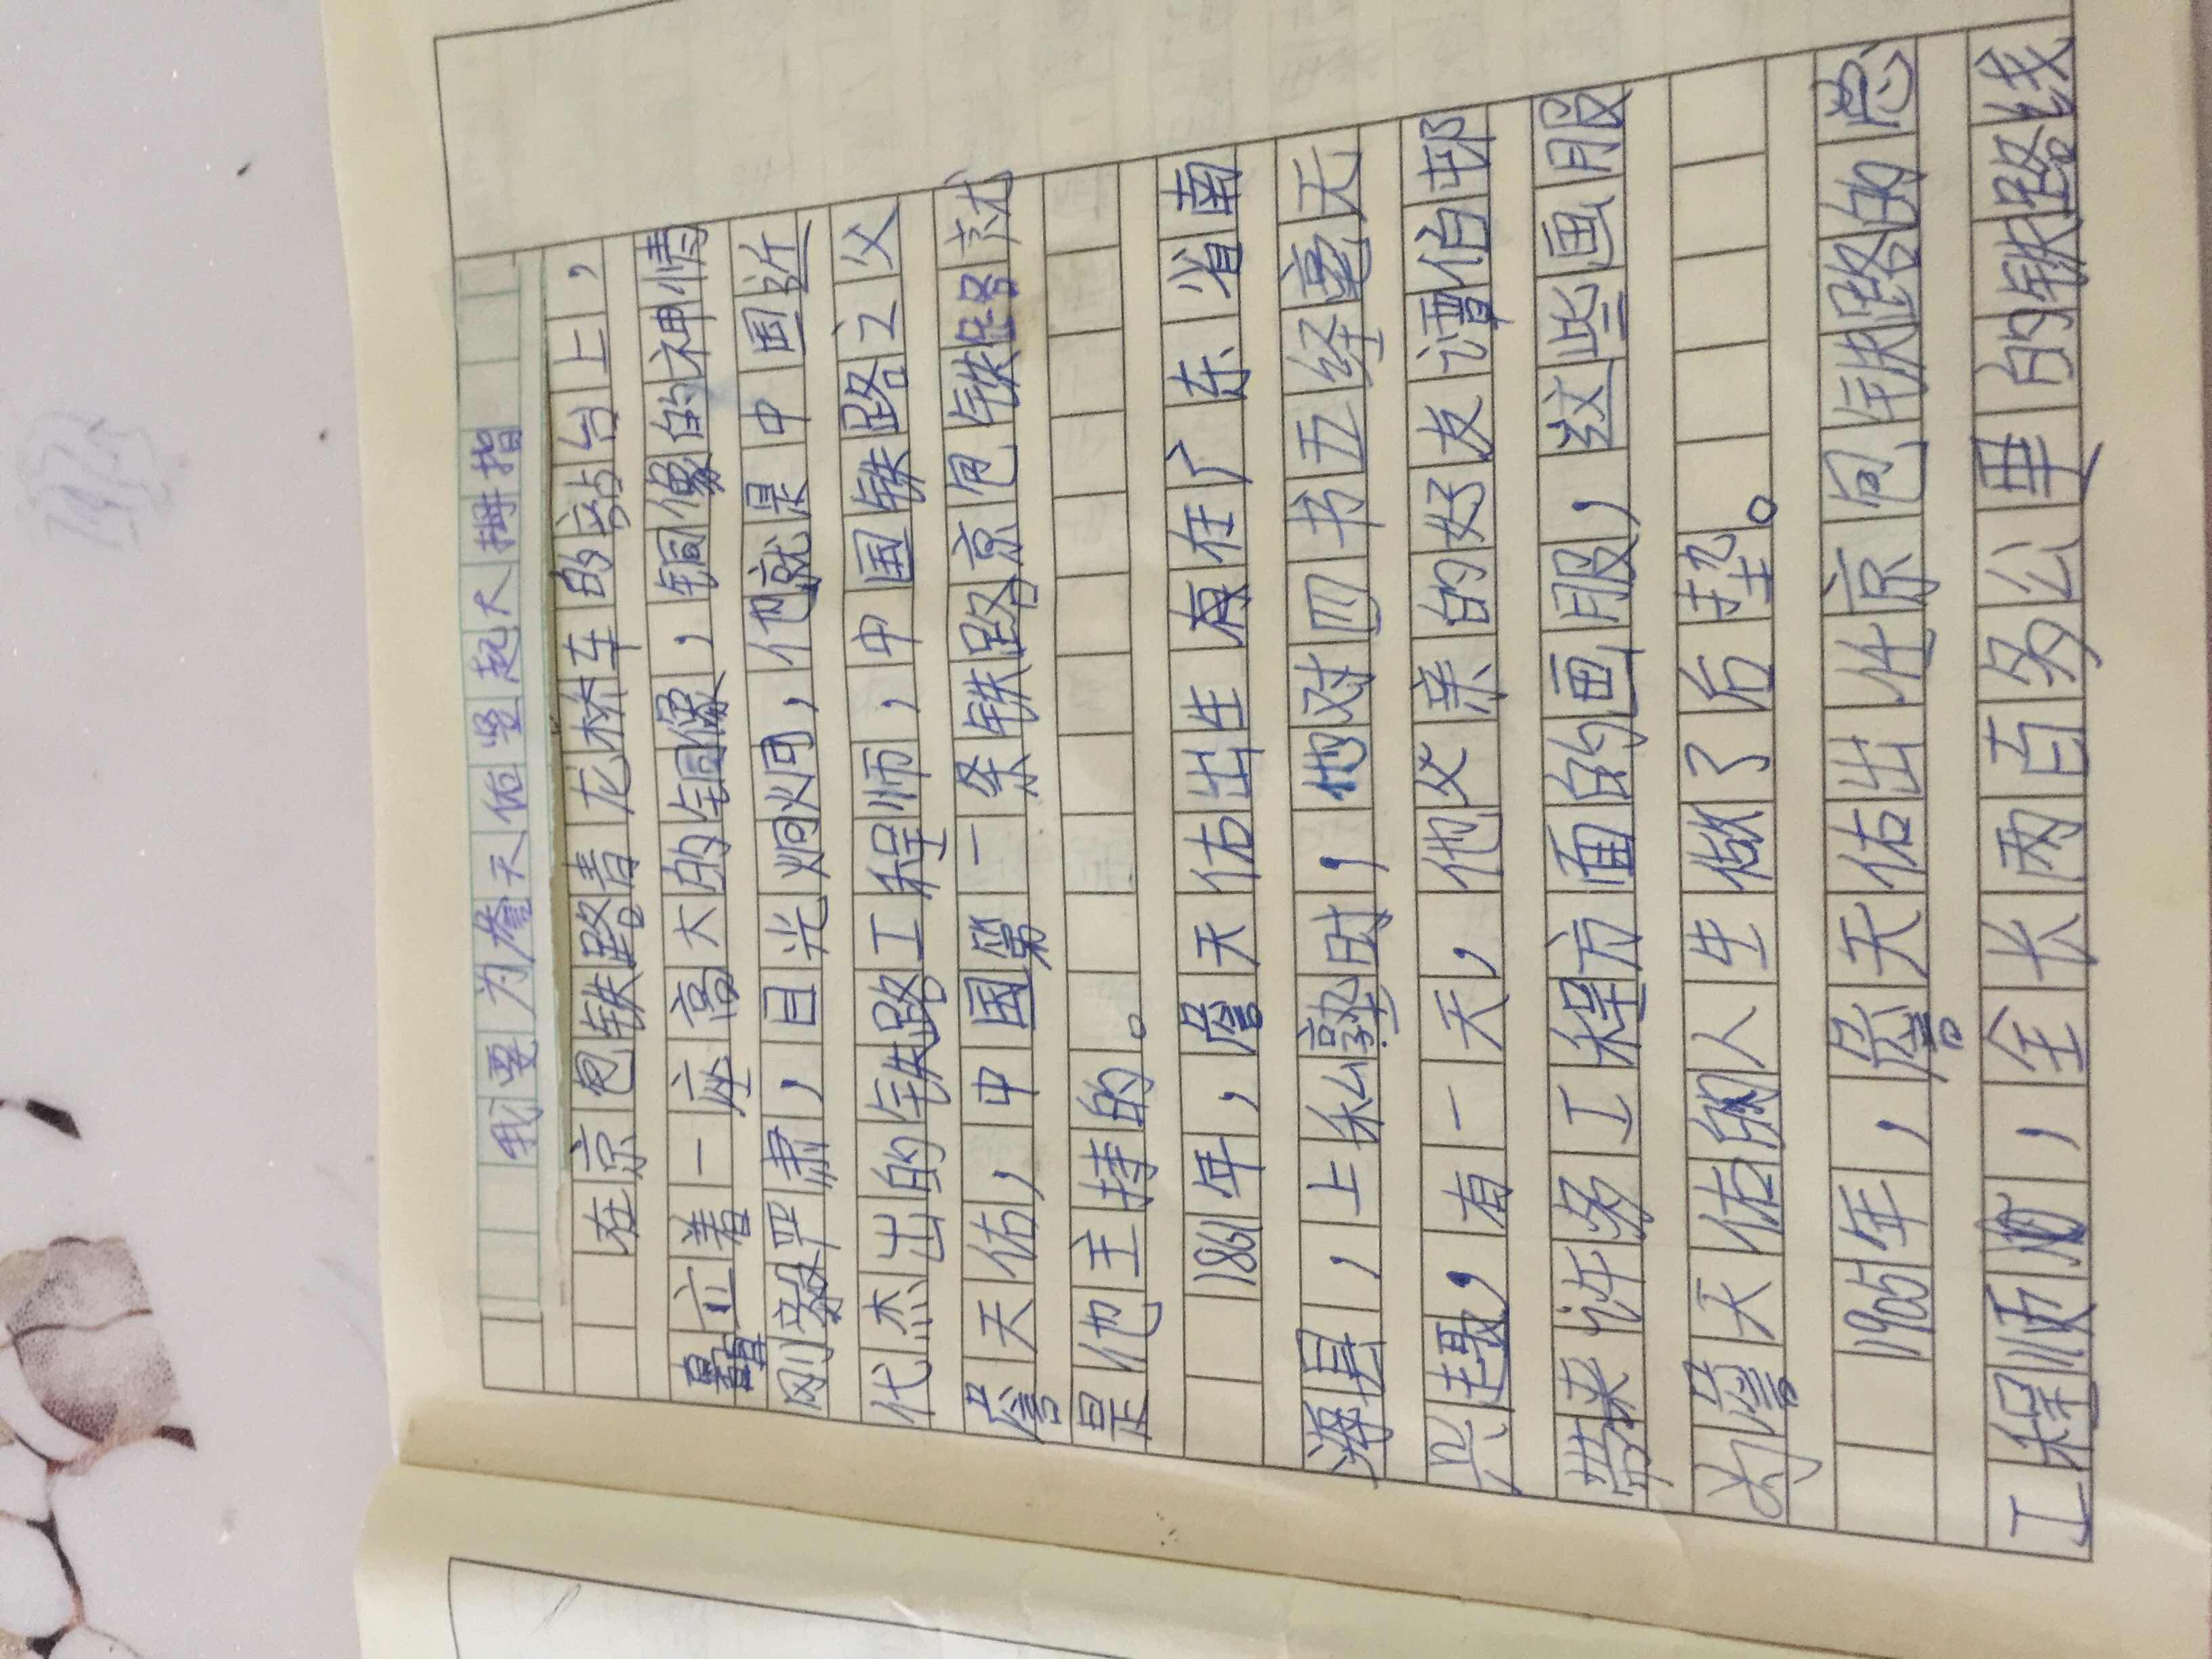 我要为詹天佑竖起大拇指
在京包铁路青龙桥车的站台上，
矗立着一座高大的铜像，铜像的神情
刚毅严肃，目光炯炯，他就是中国近
代杰出的铁路工程师，中国铁路之父
詹天佑，中国第一条铁路京包铁路就
是他主持的。
1861年，詹天佑出生在广东省南
海县，上私塾时，他对四书五经毫无
兴趣，有一天，他父亲的好友谭伯邨
带来许多工程方面的画服，这些画服
为詹天佑的人生做了后垫。
1905年，詹天佑出任京包铁路的总
工程师，全长两百多公里的铁路线